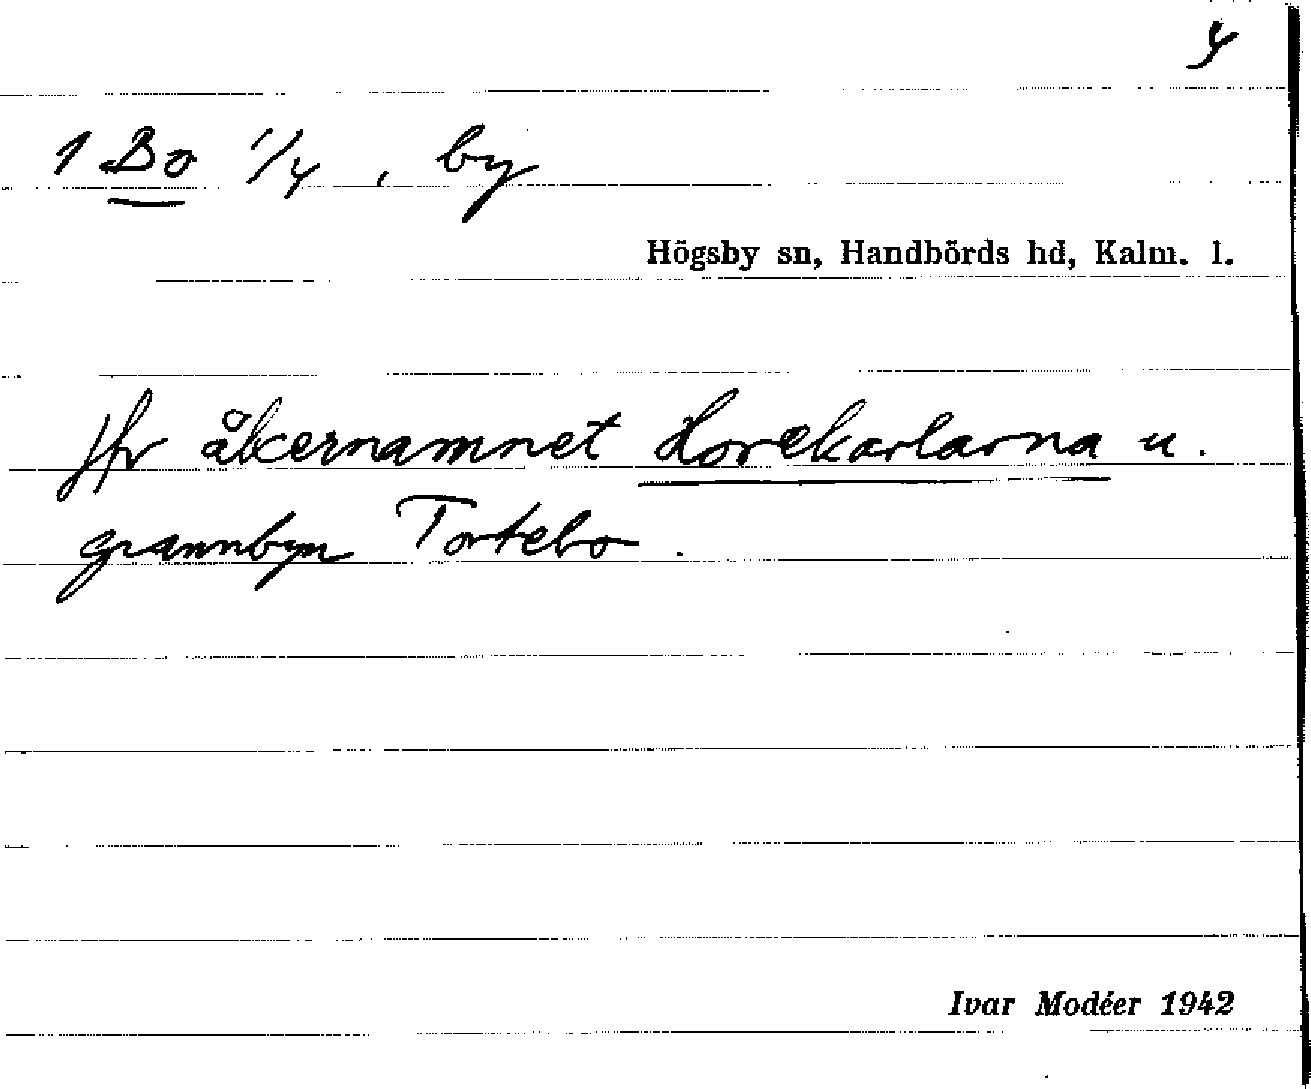 4
1 Bo 1/4, by
Högsby sn, Handbörds hd, Kalm. l.
Jfr åkernamnet Horekarlarna u.
grannbyn Tortebo.
Ivar Modéer 1942